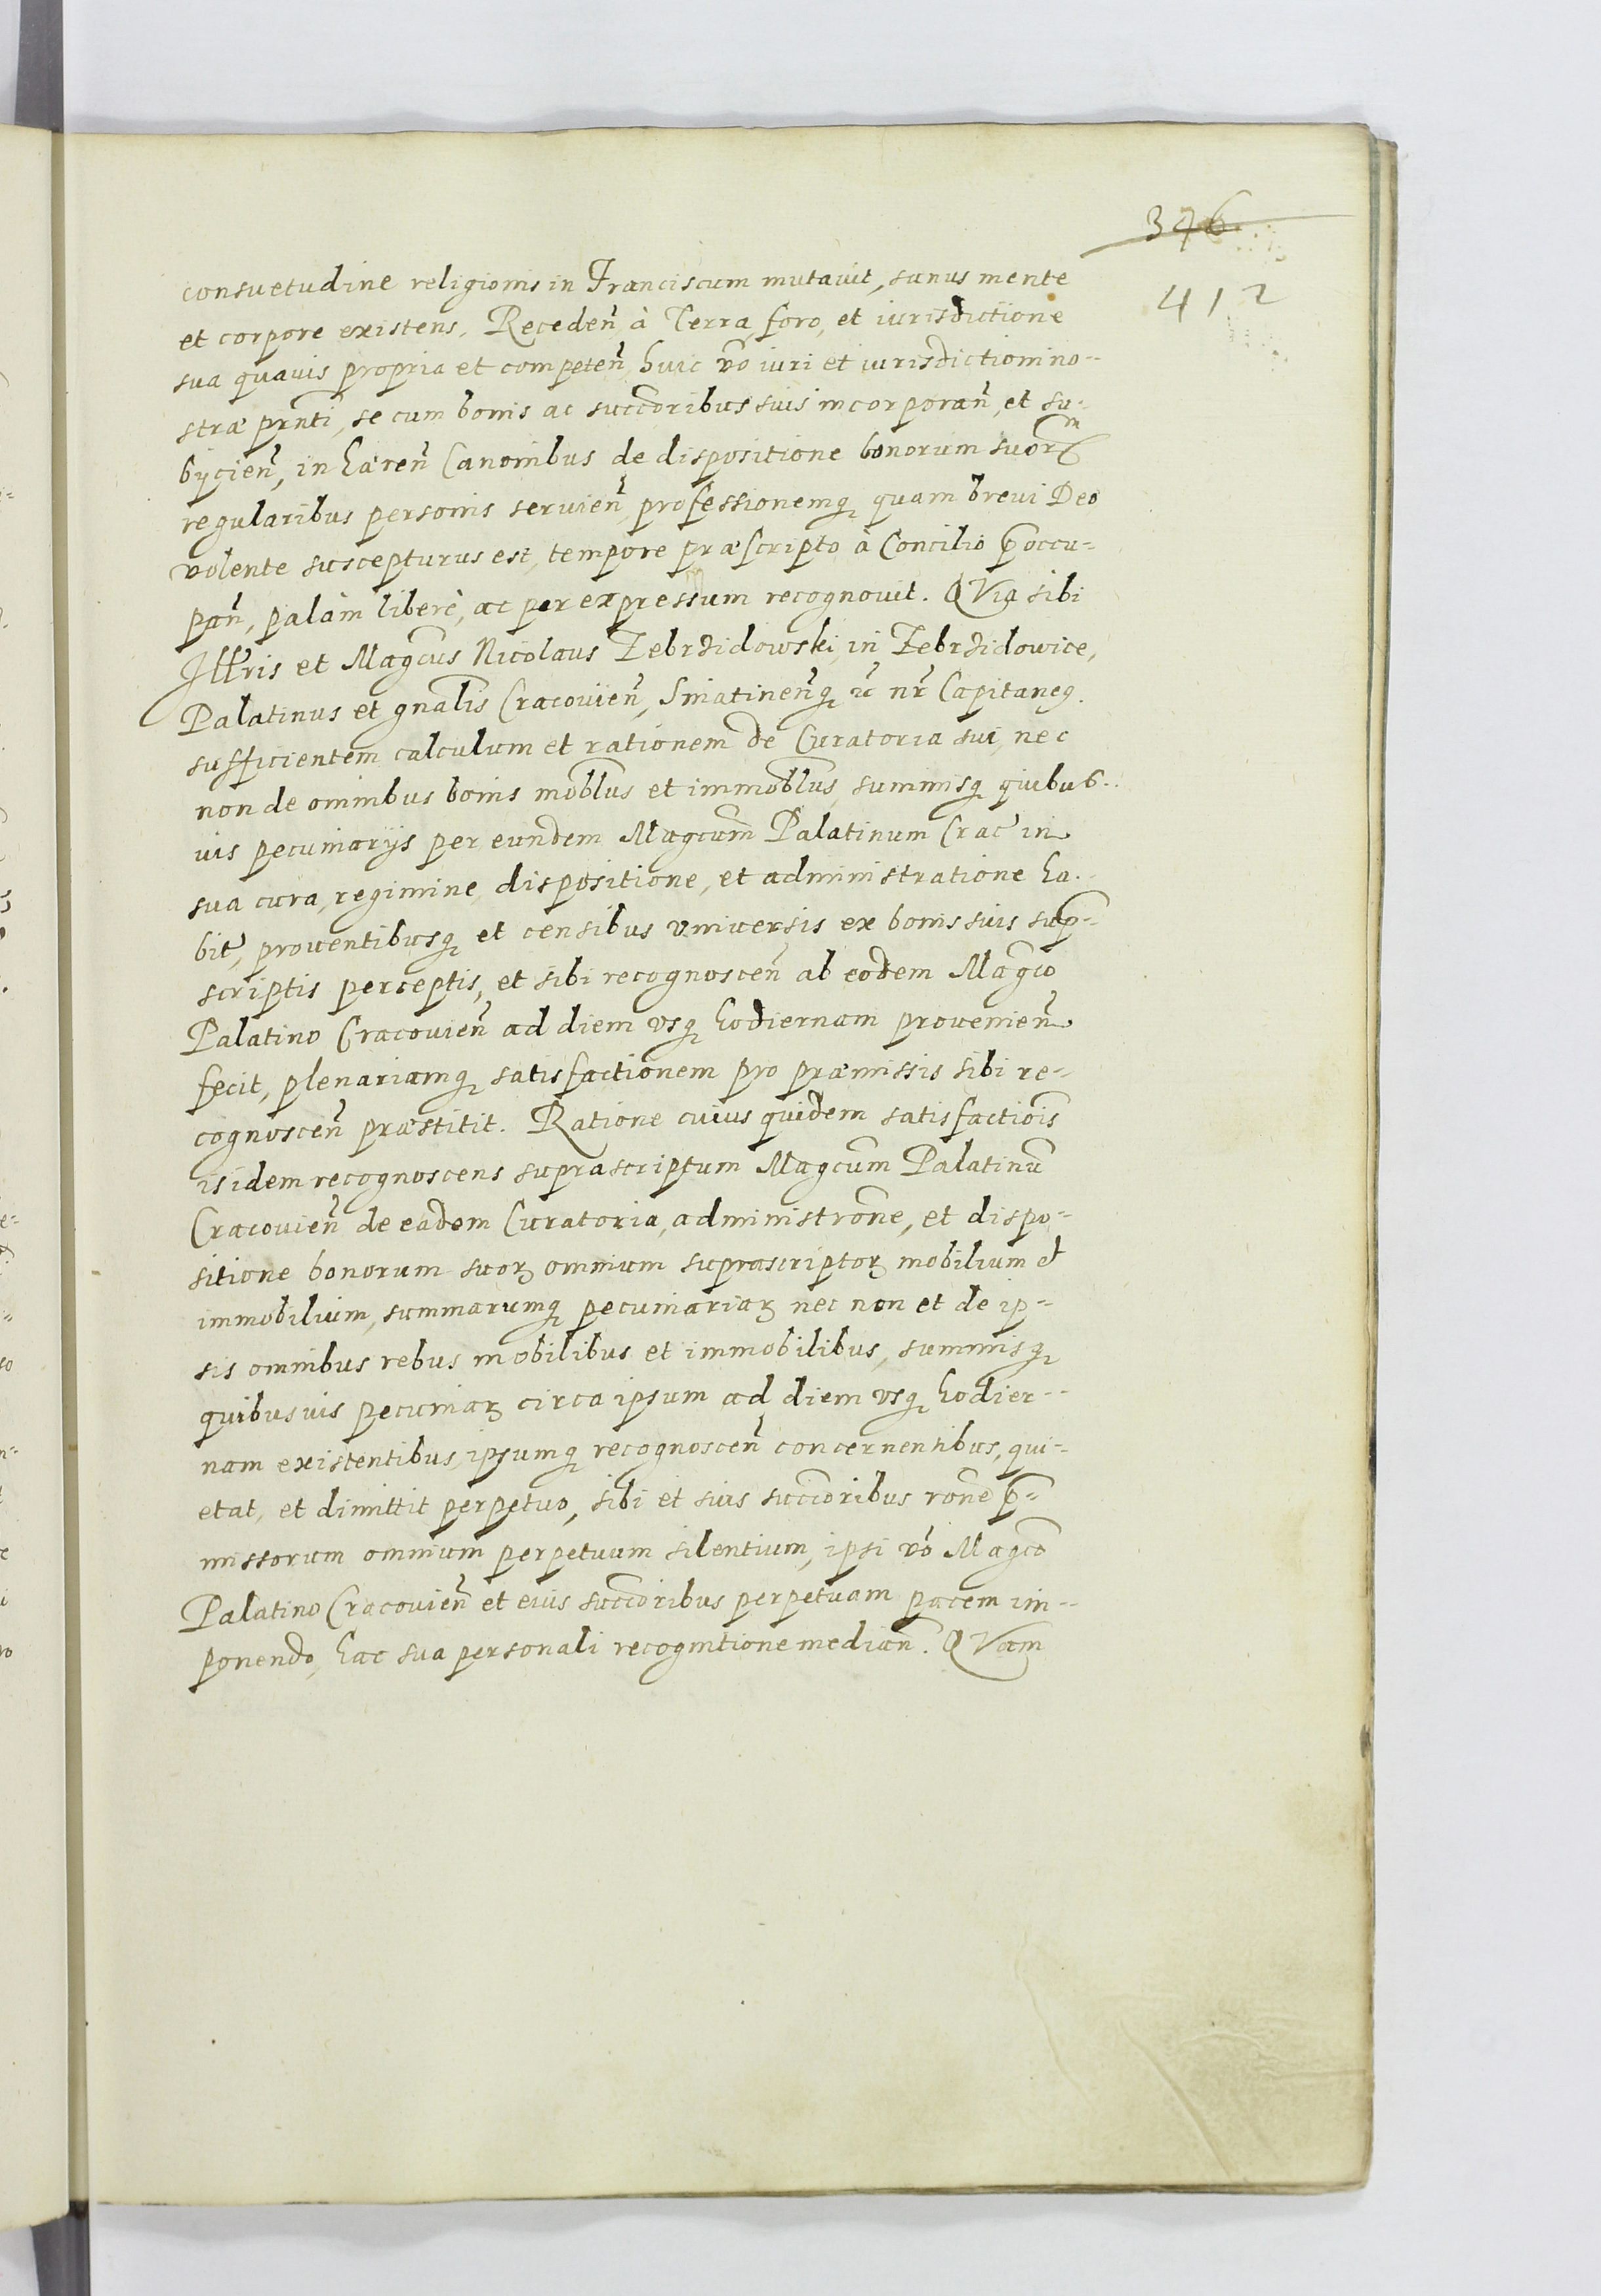 376
412
consuetudine religionis in Franciscum mutauit, sanus mente
et corpore existens. Recedeñ à Terra, foro, et iurisdictione
sua quauis propria et competeñ, huic võ iuri et iurisdictioni no-
stræ prñti, se cum bonis ac succõribus suis incorporañ, et su-
bÿcieñ, in hæreñ Canonibus de dispositione bonorum suorꝝ
regularibus personis seruieñ, professionemq̨ quam brevi Deo
volente suscepturus est, tempore præscripto à Concilio p̄occu-
pañ, palàm liberè, ac per expressum recognouit. QVia sibi
Illr̃is et Magcũs Nicolaus Zebrzidowski, in Zebrzidowice,
Palatinus et gñalis Cracouieñ, Sniatineñq̨ ac̃ nr̃ Capitaneꝯ.
sufficientem calculum et rationem de Curatoria sui, nec
non de omnibus bonis mobl̃us et immobl̃us, summisq̨ quibus-
uis pecuniarÿs per eundem Magcũm Palatinum Crac̃ in
sua cura, regimine, dispositione, et administratione ha-
bit̃, prouentibusq̨ et censibus vniuersis ex bonis suis sup̄-
scriptis perceptis, et sibi recognosceñ ab eodem Magc̃o
Palatino Cracouieñ ad diem vsq̨ hodiernam prouenieñ
fecit, plenariamq̨ satisfactionem pro præmissis sibi re-
cognosceñ præstitit. Ratione cuius quidem satisfactiõis
is idem recognoscens suprascriptum Magcũm Palatinũ
Cracouieñ de eadem Curatoria, administrõne, et dispo-
sitione bonorum suoꝝ omnium suprascriptoꝝ mobilium et
immobilium, summarumq̨ pecuniariaꝝ nec non et de ip-
sis omnibus rebus mobilibus et immobilibus, summisq̨
quibusuis pecuniaꝝ circa ipsum ad diem vsq̨ hodier-
nam existentibus, ipsumq̨ recognosceñ concernentibus, qui-
etat, et dimittit perpetuo, sibi et suis succõribus rõne p̄-
missorum omnium perpetuum silentium, ipsi võ Magc̃o
Palatino Cracouieñ et eius succõribus perpetuam pacem im-
ponendo, hac sua personali recognitione mediañ. QVam